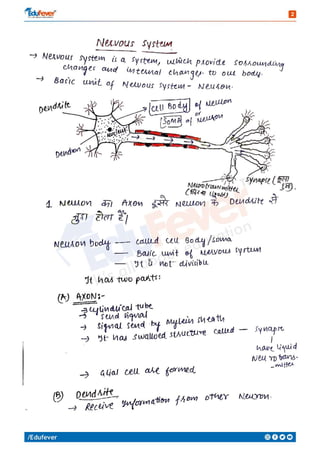 EduFever
2
Nervous System
→ Nervous system is a system, which provide sorrounding
changes and internal changes to our body.
→ Basic unit of Nervous System - Neuron.
Dendrite
→ Cell Body of Neuron
or
Soma of neuron
nucleus
Dendron
Synapse (
Neurotransmitter
1 Neuron का Axon दूसरे Neuron के Dendrite से
जुड़ा होता है।
Neuron body --- called cell Body/soma
— Basic unit of nervous system
— It is not divisible
It has two parts:
(A) AXON:-
→ cylindrical tube
→ send signal
→ signal send by Mylein sheath
→ It has swalloed structure called — synapse
have liquid
Neurotrans-
-mitter
→ Glial cell are formed
(B) Dendrite
→ Receive Information from other Neuron.
/Edufever